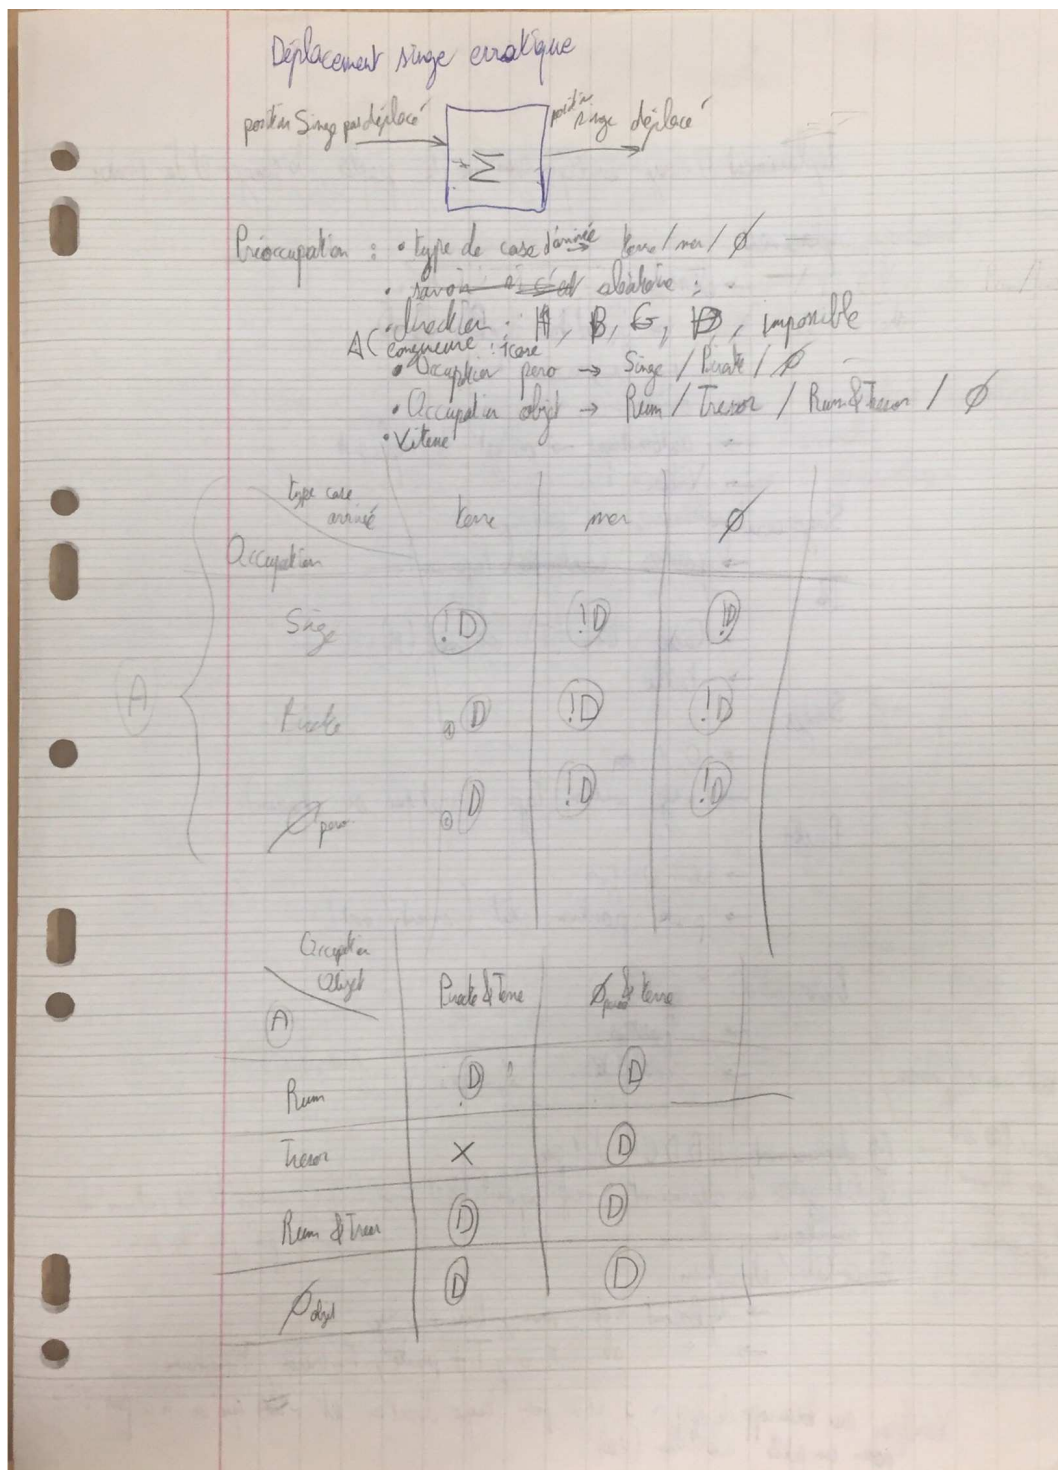 Déplacement singe erratique
position Singe pas déplacé
position singe déplacé
Σ
Préoccupation : • type de case d'arrivée → terre / mer / ∅
• savoir si c'est aléatoire :
• direction : H, B, G, D, impossible
1 case
• Occupation perso → Singe / Pirate / ∅
• Occupation objet → Rum / Tresor / Rum & Tresor / ∅
• Vitesse
type case arrivée terre mer ∅
Occupation
Singe !D !D !D
A
Pirate D !D !D
∅ perso D !D !D
Occupation Objet Pirate & Terre ∅ perso & terre
A
Rum D D
Tresor X D
Rum & Tresor D D
∅ objet D D